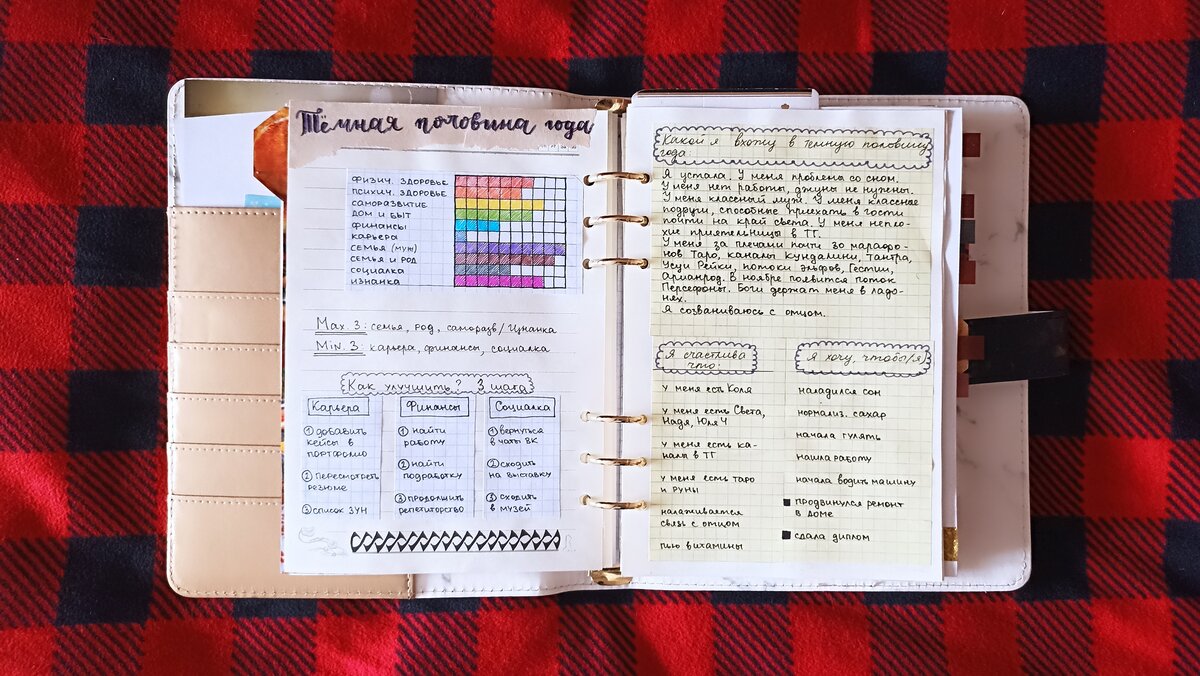 Тёмная половина года
физич. здоровье
психич. здоровье
саморазвитие
дом и быт
финансы
карьера
семья (муж)
семья и род
социалка
изнанка
Max. 3: семья, род, саморазв/Изнанка
Min. 3: карьера, финансы, социалка
Как улучшить? 3 шага
Карьера
① добавить
кейсы в
портфолио
② пересмотреть
резюме
③ список ЗУН
Финансы
① найти
работу
② найти
подработку
③ продолжить
репетиторство
Социалка
① вернуться
в чаты ВК
② сходить
на выставку
③ сходить
в музей
Какой я вхожу в темную половину
года:
Я устала. У меня проблемы со сном.
У меня нет работы, джуны не нужены.
У меня классный муж. У меня классные
подруги, способные приехать в гости
почти на край света. У меня непло-
хие приятельницы в ТГ.
У меня за плечами почти 30 марафо-
нов Таро, каналы Кундалини, Тантра,
Усуи Рейки, потоки эльфов, Гестии,
Арианрод. В ноябре появится поток
Персефоны. Боги держат меня в ладо-
нях.
Я созваниваюсь с отцом.
Я счастлива
что:
у меня есть Коля
у меня есть Света,
Надя, Юля Ч
у меня есть ка-
налы в ТГ
у меня есть таро
и руны
налаживается
связь с отцом
пью витамины
Я хочу, чтобы(я)
наладился сон
нормализ. сахар
начала гулять
нашла работу
начала водить машину
продвинулся ремонт
в доме
сдала диплом